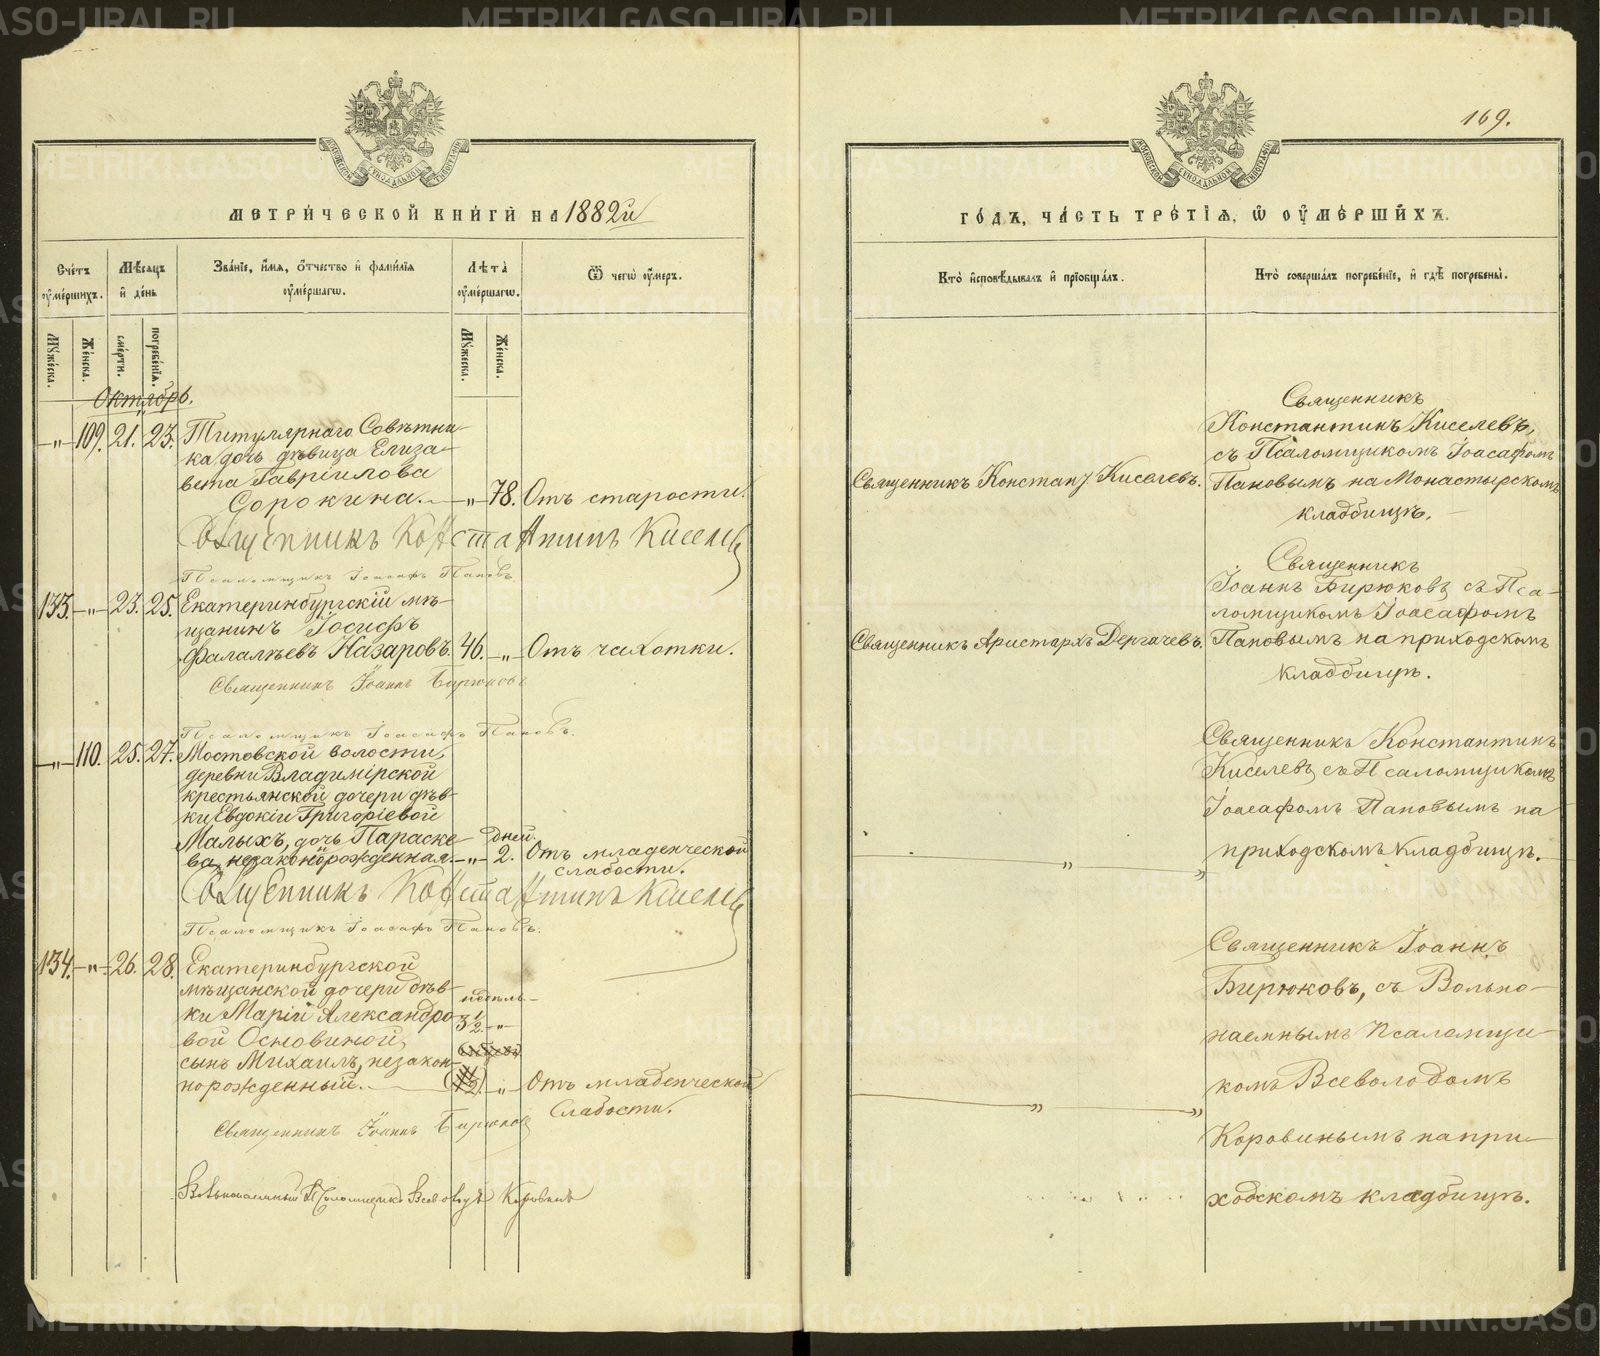 METRIKI.GASO-URAL.RU
169.
МЕТРИЧЕСКОЙ КНИГИ НА 1882й
Счетъ умершихъ.
Мѣсяцъ и день
Званіе, имя, отчество и фамилія умершаго.
Лѣта умершаго.
Ѿ чегѡ умеръ.
Мужеска.
Женска.
смерти.
погребенія.
Мужеска.
Женска.
Октябрь.
-"- 109. 21. 23. Титулярнаго Совѣтни-
ка дочь дѣвица Елиза-
вета Гавріилова
Сорокина. -"- 78. Отъ старости.
Священникъ Константинъ Киселевъ
Псаломщикъ Іоасафъ Пановъ
133. -"- 23. 25. Екатеринбургскій мѣ-
щанинъ Іосифъ
Фалалѣевъ Назаровъ. 46. -"- Отъ чахотки.
Священникъ Іоаннъ Бирюковъ
Псаломщикъ Іоасафъ Пановъ.
-"- 110. 25. 27. Мостовской волости,
деревни Владимірской
крестьянской дочери дѣв-
ки Евдокіи Григоріевой
Малыхъ, дочь Параске-
ва, незаконнорожденная. -"- дней 2. Отъ младенческой
слабости.
Священникъ Константинъ Киселевъ
Псаломщикъ Іоасафъ Пановъ.
134. -"- 26. 28. Екатеринбургской
мѣщанской дочери дѣв-
ки Маріи Александро-
вой Основиной,
сынъ Михаилъ, незакон-
норожденный. недѣль 3 1/2. -"- Отъ младенческой
слабости.
Священникъ Іоаннъ Бирюковъ
Вольнонаемный Псаломщикъ Всеволодъ Коровинъ
ГОДЪ, ЧАСТЬ ТРЕТІЯ, Ѡ УМЕРШИХЪ.
Кто исповѣдывалъ и пріобщалъ.
Кто совершалъ погребеніе, и гдѣ погребены.
Священникъ Констант. Киселевъ.
Священникъ
Константинъ Киселевъ,
съ Псаломщикомъ Іоасафомъ
Пановымъ на Монастырскомъ
кладбищѣ.
Священникъ Аристархъ Дергачевъ.
Священникъ
Іоаннъ Бирюковъ съ Пса-
ломщикомъ Іоасафомъ
Пановымъ на приходскомъ
кладбищѣ.
" "
Священникъ Константинъ
Киселевъ съ Псаломщикомъ
Іоасафомъ Пановымъ на
приходскомъ кладбищѣ.
" "
Священникъ Іоаннъ
Бирюковъ, съ Вольно-
наемнымъ псаломщи-
комъ Всеволодомъ
Коровинымъ на при-
ходскомъ кладбищѣ.